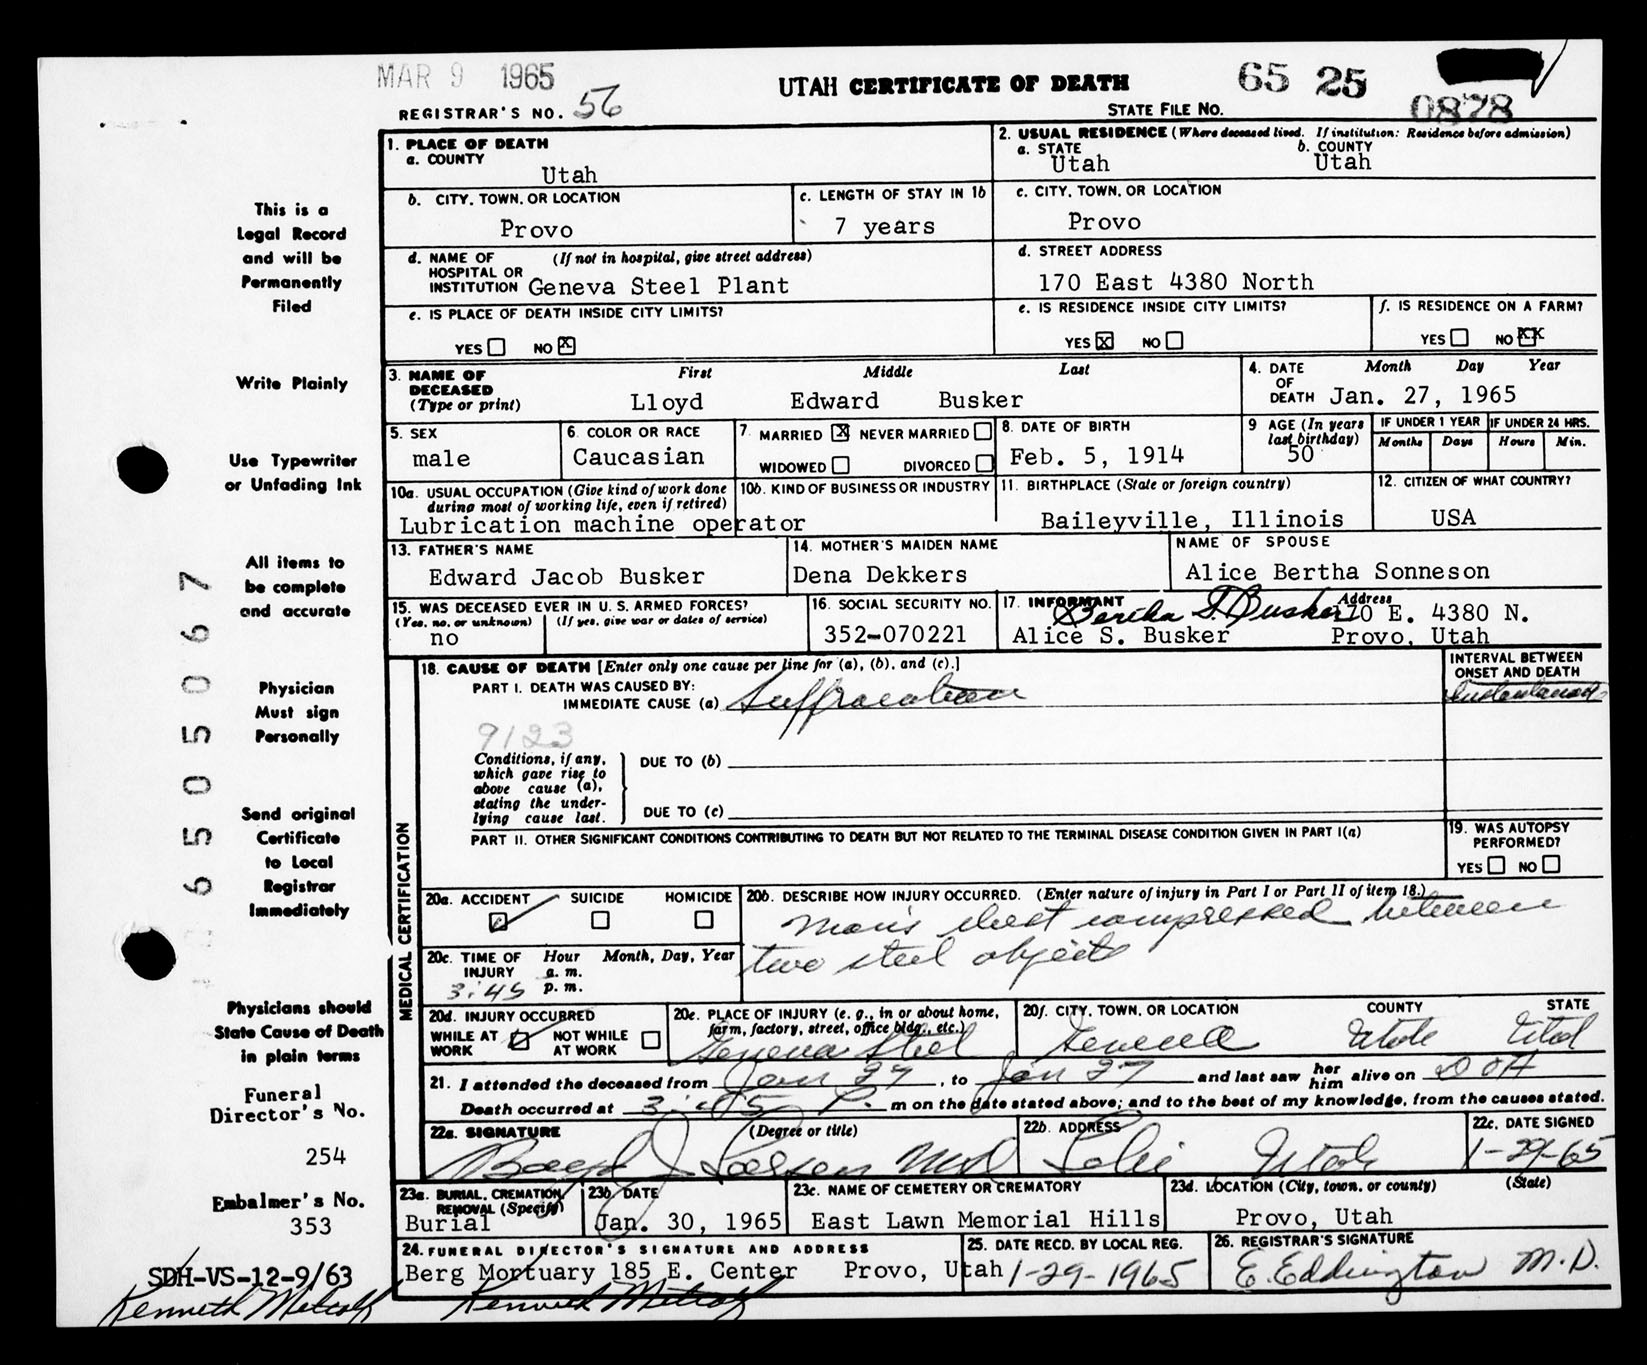 MAR 9 1965
UTAH CERTIFICATE OF DEATH
65 25
REGISTRAR'S NO. 56
STATE FILE NO. 0878
1. PLACE OF DEATH
a. COUNTY
Utah
2. USUAL RESIDENCE (Where deceased lived. If institution: Residence before admission)
a. STATE
Utah
b. COUNTY
Utah
b. CITY, TOWN, OR LOCATION
Provo
c. LENGTH OF STAY IN 1b
7 years
c. CITY, TOWN, OR LOCATION
Provo
d. NAME OF HOSPITAL OR INSTITUTION (If not in hospital, give street address)
Geneva Steel Plant
d. STREET ADDRESS
170 East 4380 North
e. IS PLACE OF DEATH INSIDE CITY LIMITS?
YES NO X
e. IS RESIDENCE INSIDE CITY LIMITS?
YES X NO
f. IS RESIDENCE ON A FARM?
YES NO XX
3. NAME OF DECEASED (Type or print)
First Middle Last
Lloyd Edward Busker
4. DATE OF DEATH
Month Day Year
Jan. 27, 1965
5. SEX
male
6. COLOR OR RACE
Caucasian
7. MARRIED X NEVER MARRIED
WIDOWED DIVORCED
8. DATE OF BIRTH
Feb. 5, 1914
9 AGE (In years last birthday)
50
IF UNDER 1 YEAR
Months Days
IF UNDER 24 HRS.
Hours Min.
10a. USUAL OCCUPATION (Give kind of work done during most of working life, even if retired)
Lubrication machine operator
10b. KIND OF BUSINESS OR INDUSTRY
11. BIRTHPLACE (State or foreign country)
Baileyville, Illinois
12. CITIZEN OF WHAT COUNTRY?
USA
13. FATHER'S NAME
Edward Jacob Busker
14. MOTHER'S MAIDEN NAME
Dena Dekkers
NAME OF SPOUSE
Alice Bertha Sonneson
15. WAS DECEASED EVER IN U. S. ARMED FORCES?
(Yes, no, or unknown) (If yes, give war or dates of service)
no
16. SOCIAL SECURITY NO.
352-070221
17. INFORMANT Address
Bertha S. Busker 170 E. 4380 N.
Alice S. Busker Provo, Utah
MEDICAL CERTIFICATION
18. CAUSE OF DEATH [Enter only one cause per line for (a), (b), and (c).]
INTERVAL BETWEEN ONSET AND DEATH
PART I. DEATH WAS CAUSED BY:
IMMEDIATE CAUSE (a) Suffocation
9123
Conditions, if any, which gave rise to above cause (a), stating the under-lying cause last.
DUE TO (b)
DUE TO (c)
PART II. OTHER SIGNIFICANT CONDITIONS CONTRIBUTING TO DEATH BUT NOT RELATED TO THE TERMINAL DISEASE CONDITION GIVEN IN PART I(a)
19. WAS AUTOPSY PERFORMED?
YES NO
20a. ACCIDENT SUICIDE HOMICIDE
20b. DESCRIBE HOW INJURY OCCURRED. (Enter nature of injury in Part I or Part II of item 18.)
Man's chest compressed between
two steel objects
20c. TIME OF INJURY Hour Month, Day, Year
a. m.
3:45 p. m.
20d. INJURY OCCURRED
WHILE AT WORK NOT WHILE AT WORK
20e. PLACE OF INJURY (e. g., in or about home, farm, factory, street, office bldg., etc.)
Geneva Steel
20f. CITY, TOWN, OR LOCATION COUNTY STATE
Geneva Utah Utah
21. I attended the deceased from Jan 27, to Jan 27 and last saw her him alive on DOA
Death occurred at 3:45 P. m on the date stated above; and to the best of my knowledge, from the causes stated.
22a. SIGNATURE (Degree or title)
Boyd J. Larsen MD
22b. ADDRESS
Lehi Utah
22c. DATE SIGNED
1-29-65
23a. BURIAL, CREMATION, REMOVAL (Specify)
Burial
23b. DATE
Jan. 30, 1965
23c. NAME OF CEMETERY OR CREMATORY
East Lawn Memorial Hills
23d. LOCATION (City, town, or county) (State)
Provo, Utah
24. FUNERAL DIRECTOR'S SIGNATURE AND ADDRESS
Berg Mortuary 185 E. Center Provo, Utah
Kenneth Metcalf
25. DATE RECD. BY LOCAL REG.
1-29-1965
26. REGISTRAR'S SIGNATURE
E. Eddington M.D.
This is a
Legal Record
and will be
Permanently
Filed
Write Plainly
Use Typewriter
or Unfading Ink
All items to
be complete
and accurate
Physician
Must sign
Personally
Send original
Certificate
to Local
Registrar
Immediately
Physicians should
State Cause of Death
in plain terms
Funeral
Director's No.
254
Embalmer's No.
353
SDH-VS-12-9/63
Kenneth Metcalf
6505067